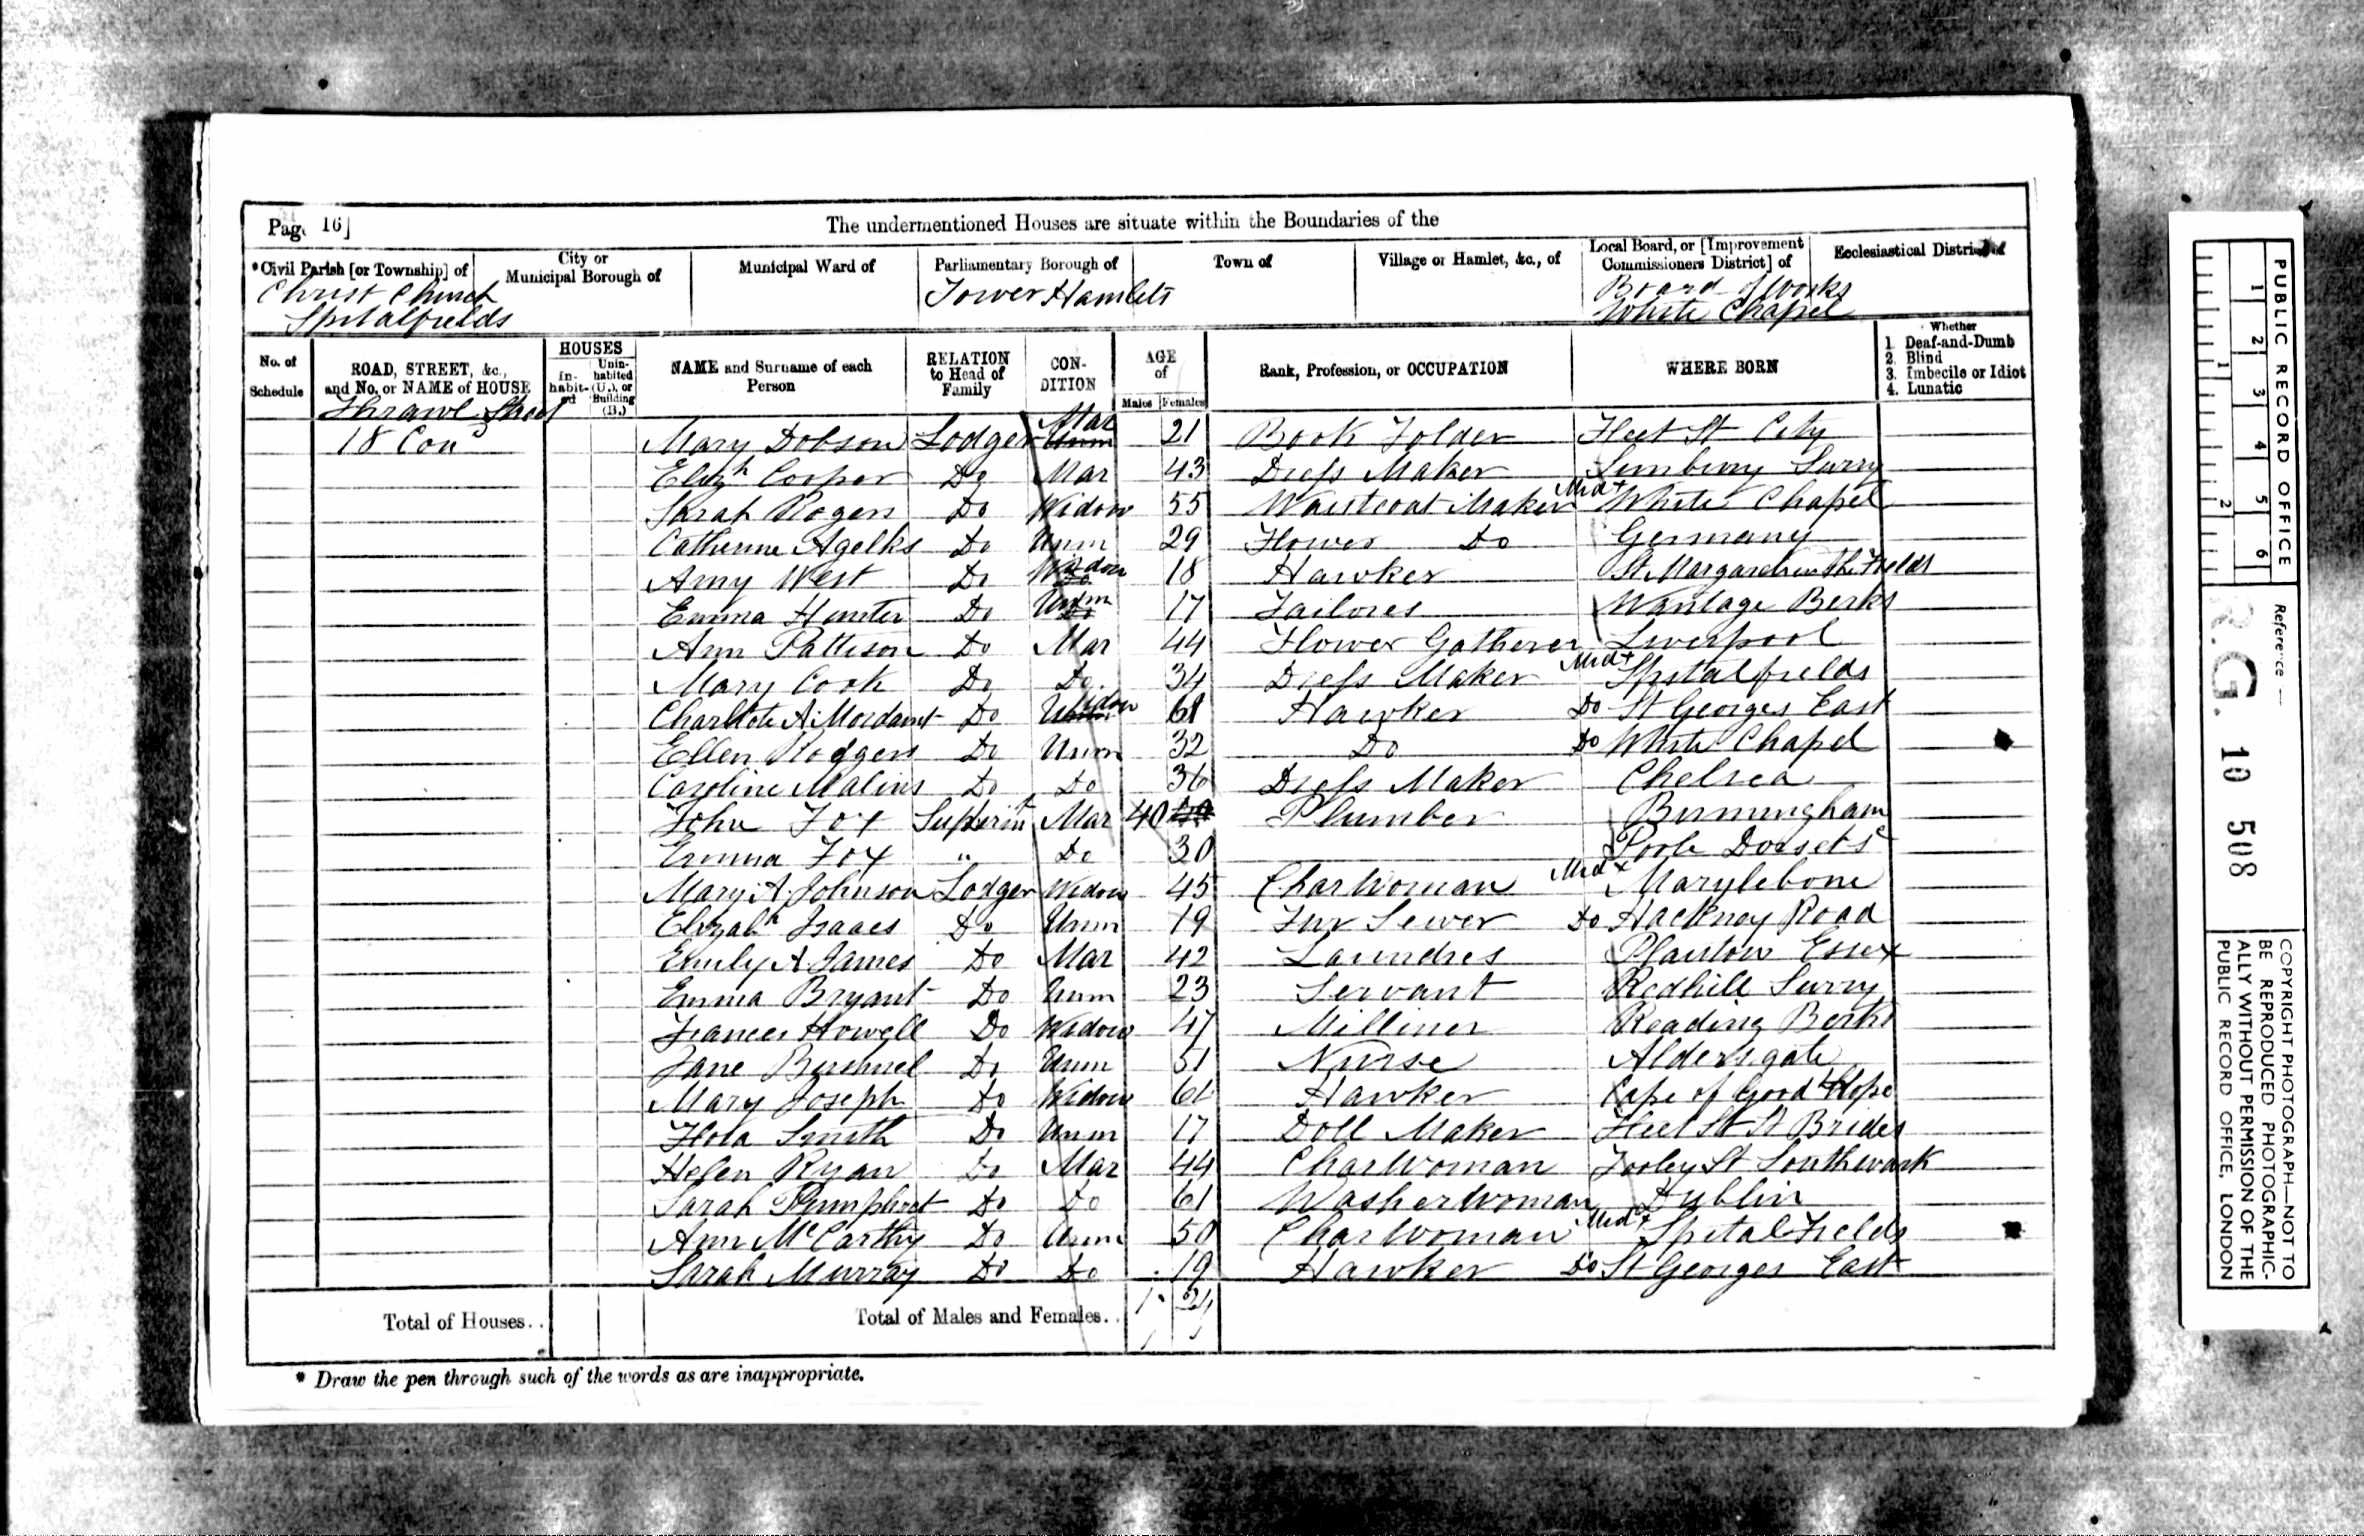 Page 16]
The undermentioned Houses are situate within the Boundaries of the
*Civil Parish [or Township] of
City or Municipal Borough of
Municipal Ward of
Parliamentary Borough of
Town of
Village or Hamlet, &c., of
Local Board, or [Improvement Commissioners District] of
Ecclesiastical District of
Christ Church Spitalfields
Tower Hamlets
Board of Works White Chapel
No. of Schedule
ROAD, STREET, &c., and No. or NAME of HOUSE
HOUSES
In-habit-ed
Unin-habited (U.), or Building (B.)
NAME and Surname of each Person
RELATION to Head of Family
CON-DITION
AGE of
Males Females
Rank, Profession, or OCCUPATION
WHERE BORN
Whether
1. Deaf-and-Dumb
2. Blind
3. Imbecile or Idiot
4. Lunatic
Thrawl Street
18 Cond Mary Dobson Lodger Mar Unm 21 Book Folder Fleet St City
Elizh Cooper Do Mar 43 Dress Maker Surry
Sarah Rogers Do Widow 55 Waistcoat Maker Midx White Chapel
Catherine Agelks Do Unm 29 Flower Do Germany
Amy West Do Widow Do 18 Hawker St Margaret in the Fields
Emma Hunter Do Unm Do 17 Tailores Wantage Berks
Ann Pattison Do Mar 44 Flower Gatherer Liverpool
Mary Cook Do Do 34 Dress Maker Midx Spitalfields
Charlote A. Mordaunt Do Widow 61 Hawker Do St Georges East
Ellen Rodgers Do Unm 32 Do Do White Chapel
Caroline Malins Do Do 36 Dress Maker Chelsea
John Fox Superint Mar 40 Plumber Birmingham
Emma Fox " Do 30 Poole Dorsets
Mary A. Johnson Lodger Widow 45 Char Woman Midx Marylebone
Elizabh Isaacs Do Unm 19 Fur Sewer Do Hackney Road
Emily A. James Do Mar 42 Laundres Plaistow Essex
Emma Bryant Do Unm 23 Servant Redhill Surry
Frances Howell Do Widow 47 Milliner Reading Berks
Jane Do Unm 51 Nurse Aldersgate
Mary Joseph Do Widow 61 Hawker Cape of Good Hope
Flora Smith Do Unm 17 Doll Maker Fleet St St Brides
Helen Ryan Do Mar 44 Char Woman Tooley St Southwark
Sarah Pumphret Do Do 61 Washerwoman Dublin
Ann McCarthy Do Unm 50 Char Woman Midx Spital Fields
Sarah Murray Do Do 19 Hawker Do St Georges East
Total of Houses..
Total of Males and Females.. 1 24
* Draw the pen through such of the words as are inappropriate.
PUBLIC RECORD OFFICE
1 2 3 4 5 6
1 2
Reference :—
R.G. 10 508
COPYRIGHT PHOTOGRAPH—NOT TO
BE REPRODUCED PHOTOGRAPHIC-
ALLY WITHOUT PERMISSION OF THE
PUBLIC RECORD OFFICE, LONDON